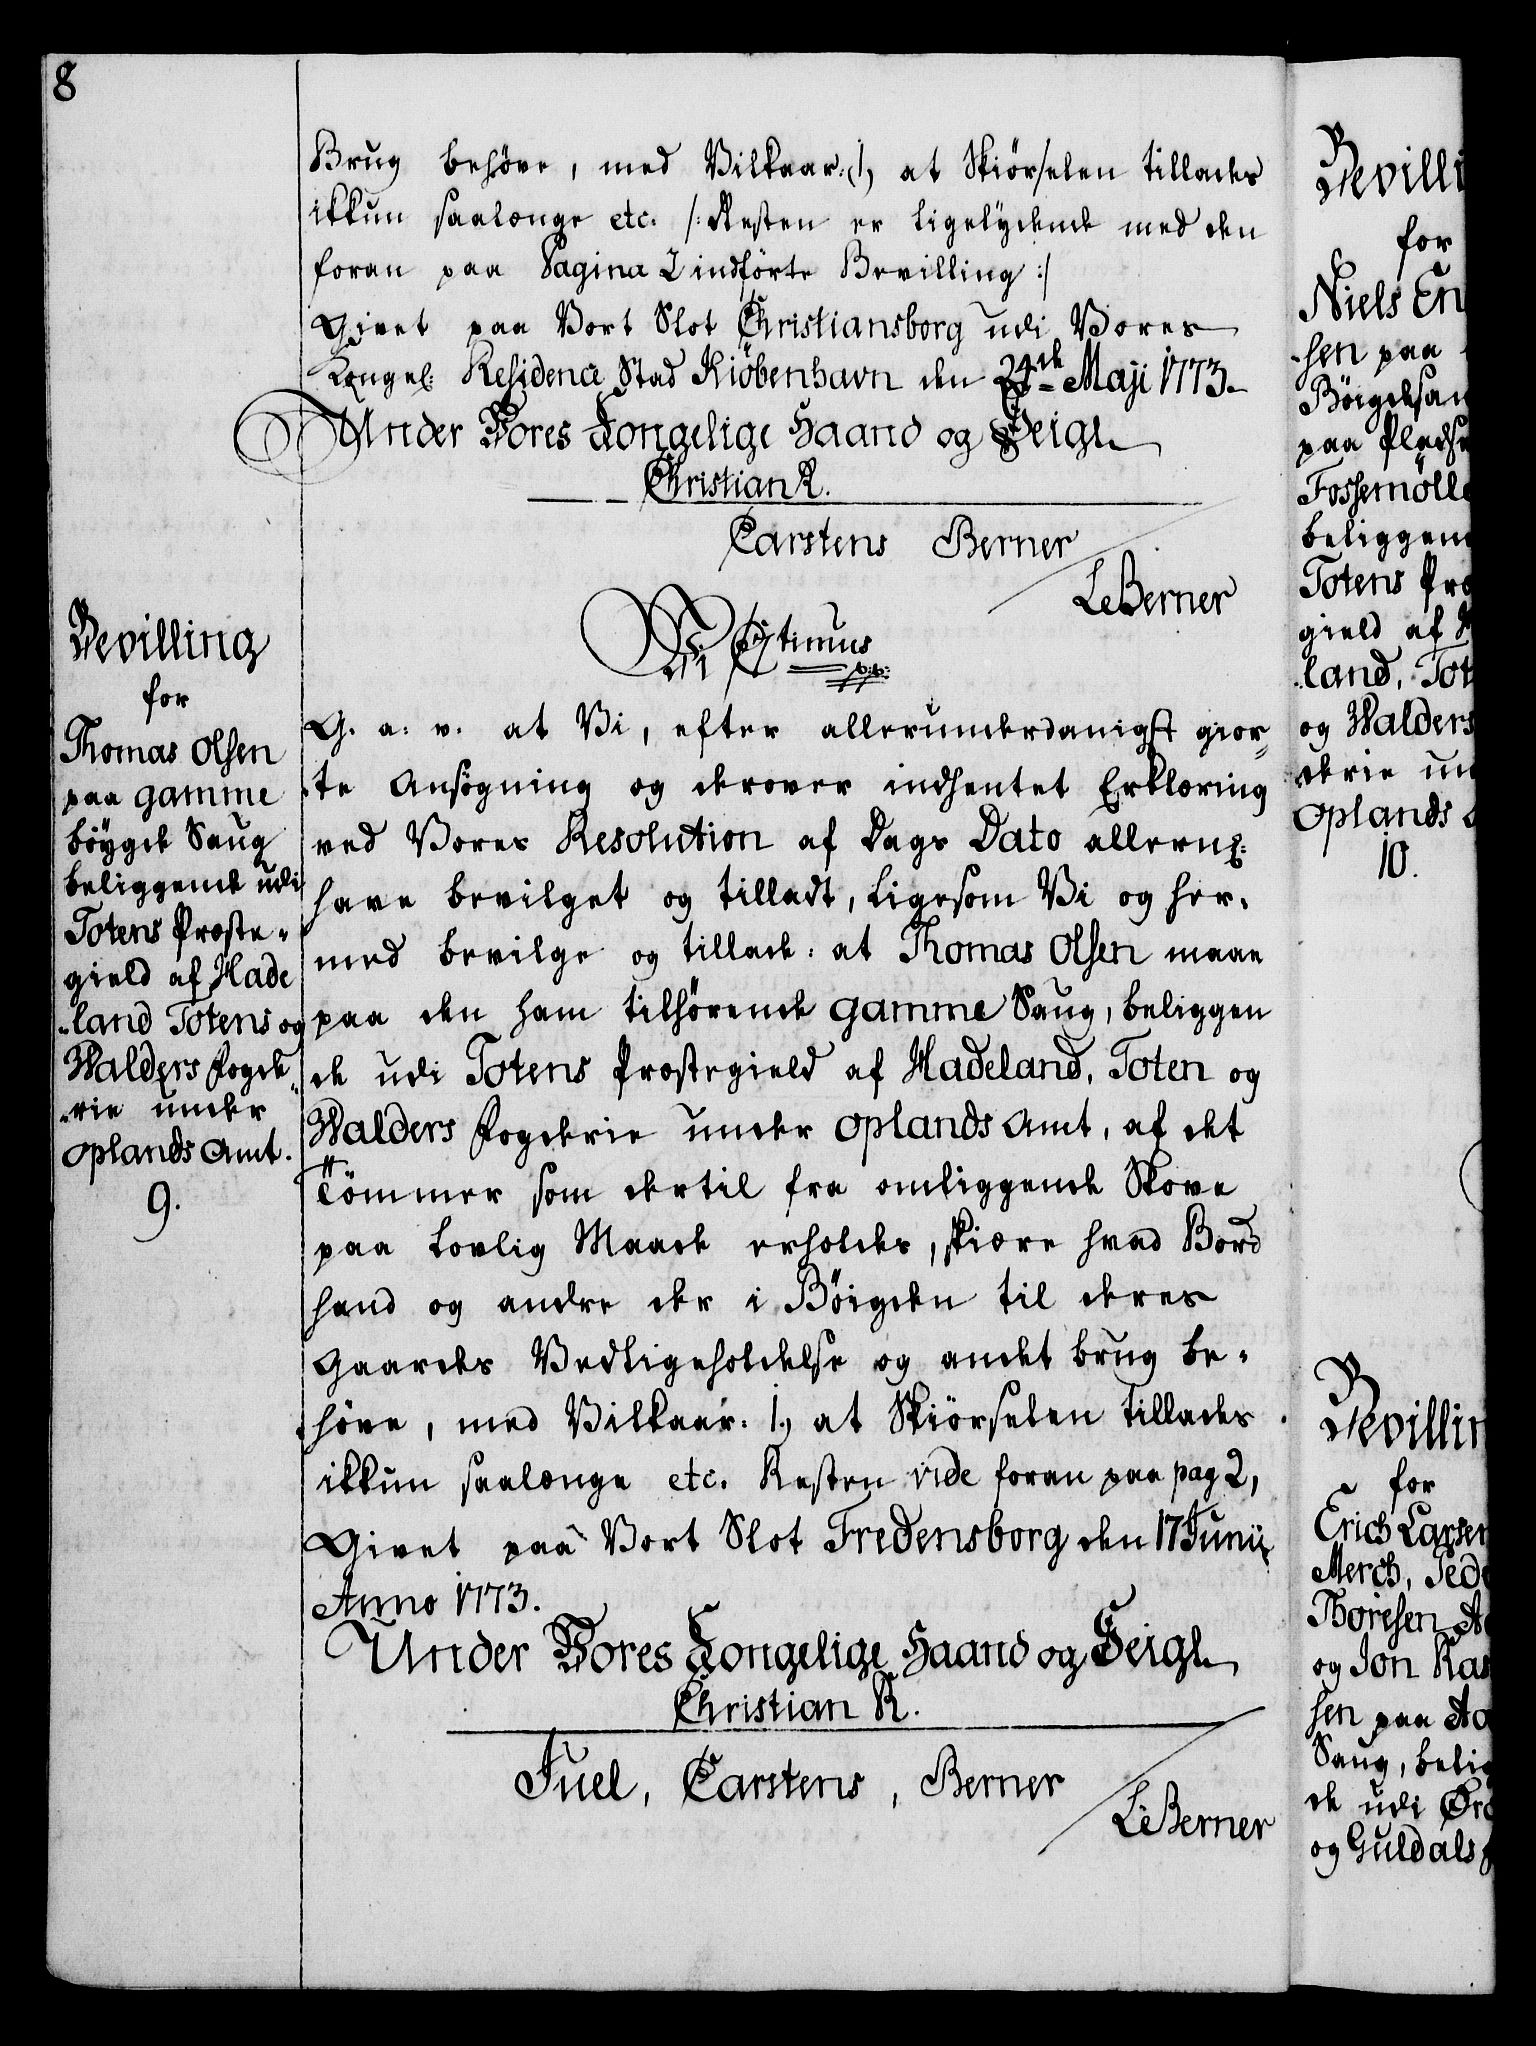 8
Brug behöve, med Vilkaar: 1, at Skiörselen tillades
ikkun saalænge etc. /: Resten er ligelydende med den
foran paa Pagina 2 indförte Bevilling :/
Givet paa Vort Slot Christiansborg udi Vores
Kongel: Residence Stad Kiöbenhavn den 24de Maji 1773.
Under Vores Kongelige Haand og Seigl
Christian R.
Carstens Berner
LeBerner
Bevilling
for
Thomas Olsen
paa gamme
böygde Saug
beliggende udi
Totens Præste-
gield af Hade
-land Totens og
Walders Fogde-
-rie under
Oplands Amt.
9.
Wi Chr: 7timus
p:p:
G. a: v. at Vi, efter allerunderdanigst gior-
-te Ansögning og derover indhentet Erklæring
ved Vores Resolution af Dags Dato allernl:
have bevilget og tilladt, ligesom Vi og her-
med bevilge og tillade: at Thomas Olsen maae
paa den ham tilhörende gamme Saug, beliggen
de udi Totens Præstegield af Hadeland, Toten og
Walders Fogderie under Oplands Amt, af det
Tömmer som dertil fra omliggende Skove
paa lovlig Maade erholdes, skiære hvad Bord
hand og andre der i Böigden til deres
Gaardes Vedligeholdelse og andet brug be-
höve, med Vilkaar: 1, at Skiörselen tillades
ikkun saalænge etc. Resten vide foran paa pag 2,
Givet paa Vort Slot Fredensborg den 17 Junii
Anno 1773.
Under Vores Kongelige Haand og Seigl
Christian R.
Juel, Carstens, Berner
LeBerner
Bevilli
for
Niels En
-sen paa
Böigdsa
paa Pladse
Fossemölle
beliggen
Totens Præ
gield af H
-land, Tot
og Walders
derie un
Oplands
10.
Bevillin
for
Erich Larsen
Merch, Pede
Thoresen
og Jon Ras
sen paa Aa
Saug, belig
de udi Ørc
og Guldals